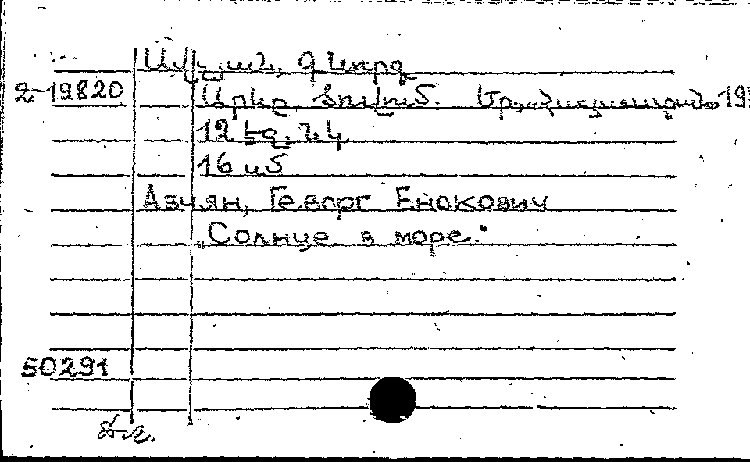 Գևորգ
2-19820 Արևը ծովում. Եր., Հայպետհրատ, 19
12 էջ. նկ
16 սմ
Азчян, Геворг Енокович
„Солнце в море."
50291